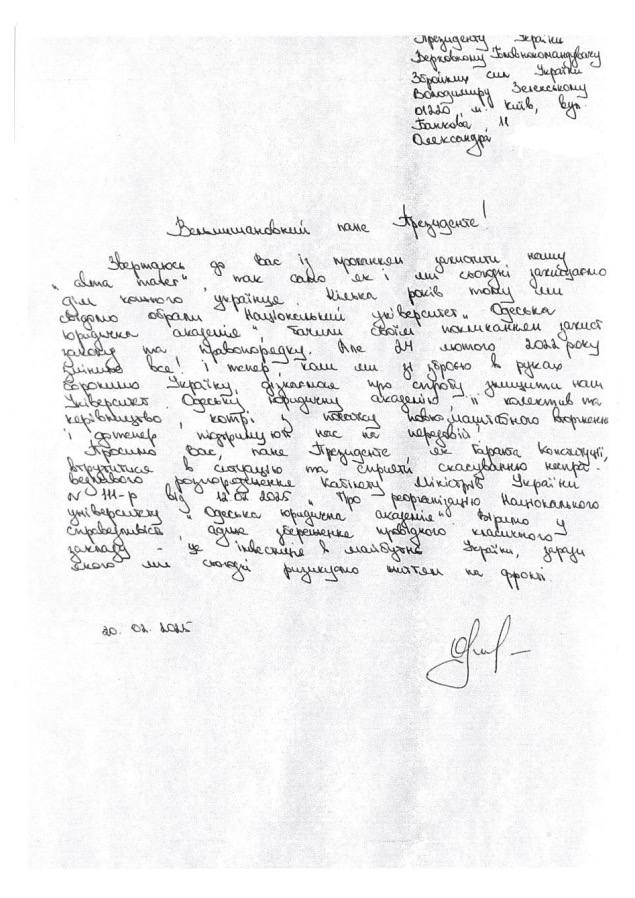 Президенту України
Верховному Головнокомандувачу
Збройних сил України
Володимиру Зеленському
01220, м. Київ, вул.
Банкова, 11
Олександра
Вельмишановний пане Президенте!
Звертаюсь до Вас із проханням захистити нашу
"alma mater", так само як і ми сьогодні захищаємо
дім кожного українця. Кілька років тому ми
свідомо обрали Національний університет "Одеська
юридична академія", бачили своїм покликанням захист
закону та правопорядку. Але 24 лютого 2022 року
змінило все! І тепер, коли ми зі зброєю в руках
боронимо Україну, дізналася про спробу знищити наш
Університет Одеську юридичну академію, її колектив та
керівництво, котрі з початку повномасштабного вторгнення
і дотепер підтримують нас на передовій.
Просимо Вас, пане Президенте, як Гаранта Конституції,
втрутитися в ситуацію та сприяти скасуванню неспра-
ведливого розпорядження Кабінету Міністрів України
№ 111-р від 12.02.2025 "Про реорганізацію Національного
університету "Одеська юридична академія". Віримо у
справедливість, адже збереження провідного класичного
закладу - це інвестиція в майбутнє України, заради
якого ми сьогодні ризикуємо життям на фронті.
20. 02. 2025